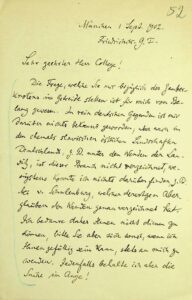 52
München 1 Sept. 1902.
Friedrichstr. 9. I.
Sehr geehrter Herr College!
Die Frage, welche Sie mir bezüglich des
im Getreide stellen ist für mich von
gewesen. In rein deutschen Gegenden ist mir
darüber nichts bekannt geworden, aber auch in
den ehemals slavischen östlichen Landschaften
Deutschlands, z. B. unter den Wenden der Lau-
sitz, ist dieser Brauch nicht verzeichnet, we-
nigstens konnte ich nichts darüber finden, z. B.
bei v. Schulenburg, welcher derartigen Aber-
glauben der Wenden genau verzeichnet hat.
Ich bedaure daher Ihnen nicht dienen zu
können, bitte Sie aber auch sonst, wenn ich
Ihnen gefällig sein kann, stets an mich zu
wenden. Jedenfalls behalte ich aber die
Sache im Auge!